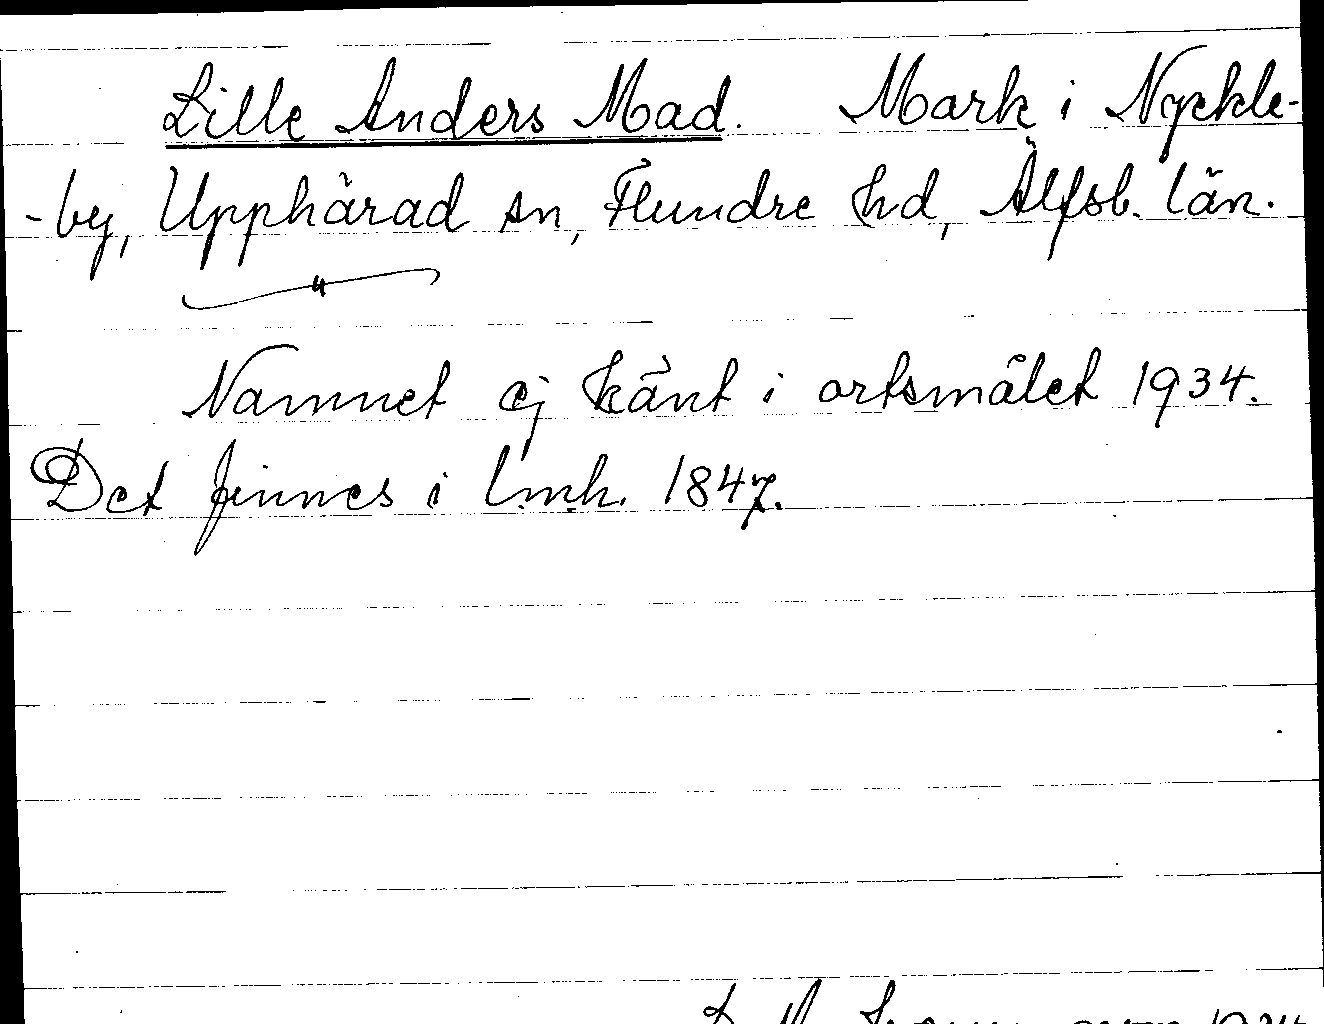 Lille Anders Mad. Mark i Nyckle-
-by, Upphärad sn, Flundre hd, Älfsb. län.
"
Namnet ej känt i ortsmålet 1934.
Det finnes i l.m.h. 1847.